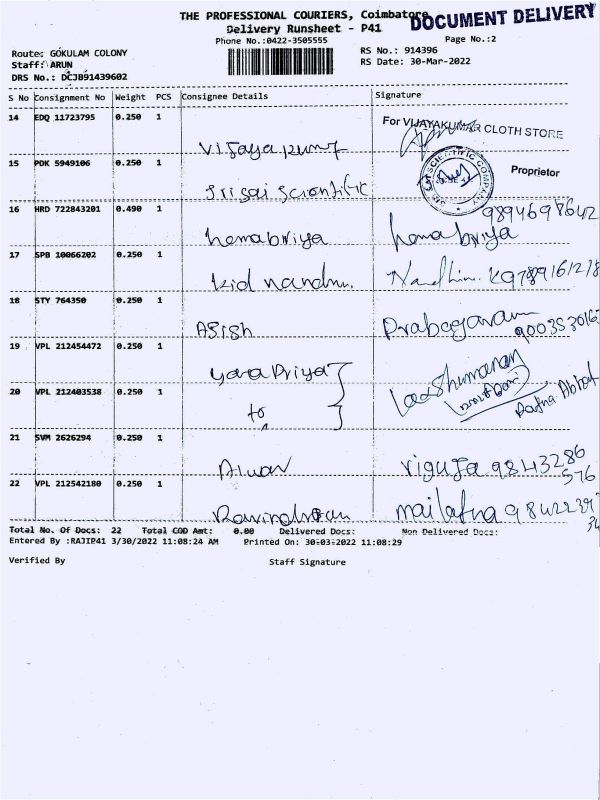 THE PROFESSIONAL COURIERS, Coimbatore
DOCUMENT DELIVERY
Delivery Runsheet - P41
Phone No.:0422-3505555
Page No.:2
Route: GOKULAM COLONY
RS No.: 914396
Staff: ARUN
RS Date: 30-Mar-2022
DRS No.: DCJB91439602
S No Consignment No Weight PCS Consignee Details Signature
14 EDQ 11723795 0.250 1
For VIJAYAKUMAR CLOTH STORE
Proprietor
15 PDK 5949106 0.250 1
SCIENTIFIC COMPANY
Srisai Scientific
16 HRD 722843201 0.490 1
9894698642
hemabriya hemabriya
17 SPB 10066202 0.250 1
Kid
18 STY 764350 0.250 1
Asish Prabagaran
19 VPL 212454472 0.250 1
Priya
20 VPL 212403538 0.250 1
to
21 SVM 2626294 0.250 1
9843286
576
22 VPL 212542180 0.250 1
Total No. Of Docs: 22 Total COD Amt: 0.00 Delivered Docs: Non Delivered Docs:
Entered By :RAJIP41 3/30/2022 11:08:24 AM Printed On: 30-03-2022 11:08:29
Verified By Staff Signature